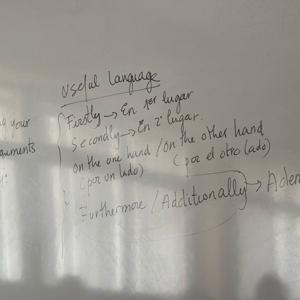 Useful Language
ng your
Firstly → En 1er lugar
Secondly → En 2º lugar.
guments
on the one hand / on the other hand
(por un lado) (por el otro lado)
Furthermore / Additionally → Adem